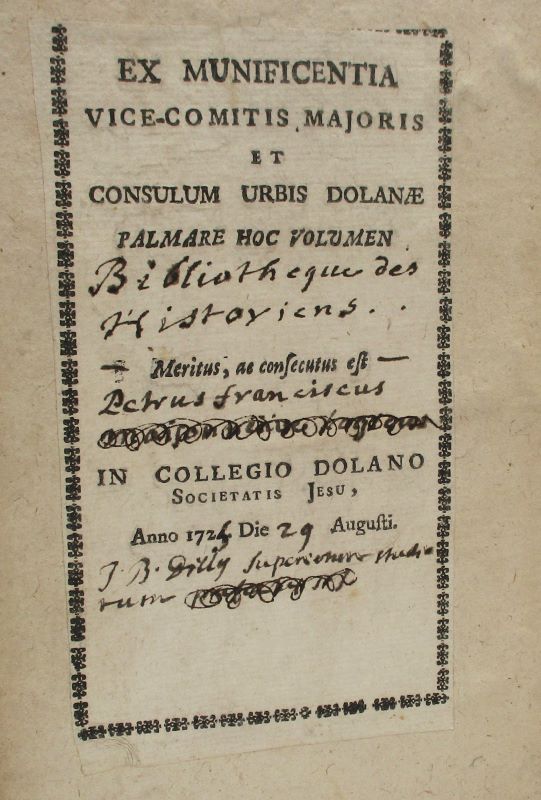 EX MUNIFICENTIA
VICE-COMITIS MAJORIS
ET
CONSULUM URBIS DOLANÆ
PALMARE HOC VOLUMEN
Bibliotheque des
Historiens..
— Meritus, ac consecutus est —
Petrus franciscus
IN COLLEGIO DOLANO
SOCIETATIS JESU,
Anno 172 Die 29 Augusti.
J. B. Dilly Superiorum studio
rum